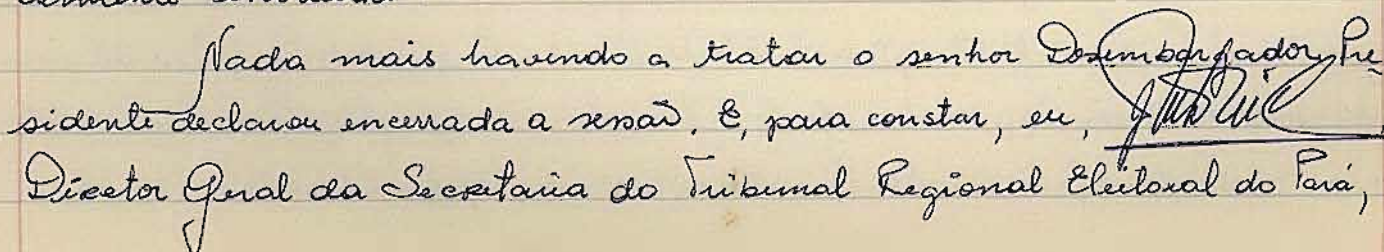 Nada mais havendo a tratar o senhor Desembargador Pre-
sidente declarou encerrada a sessão. E, para constar, eu,
Diretor Geral da Secretaria do Tribunal Regional Eleitoral do Pará,